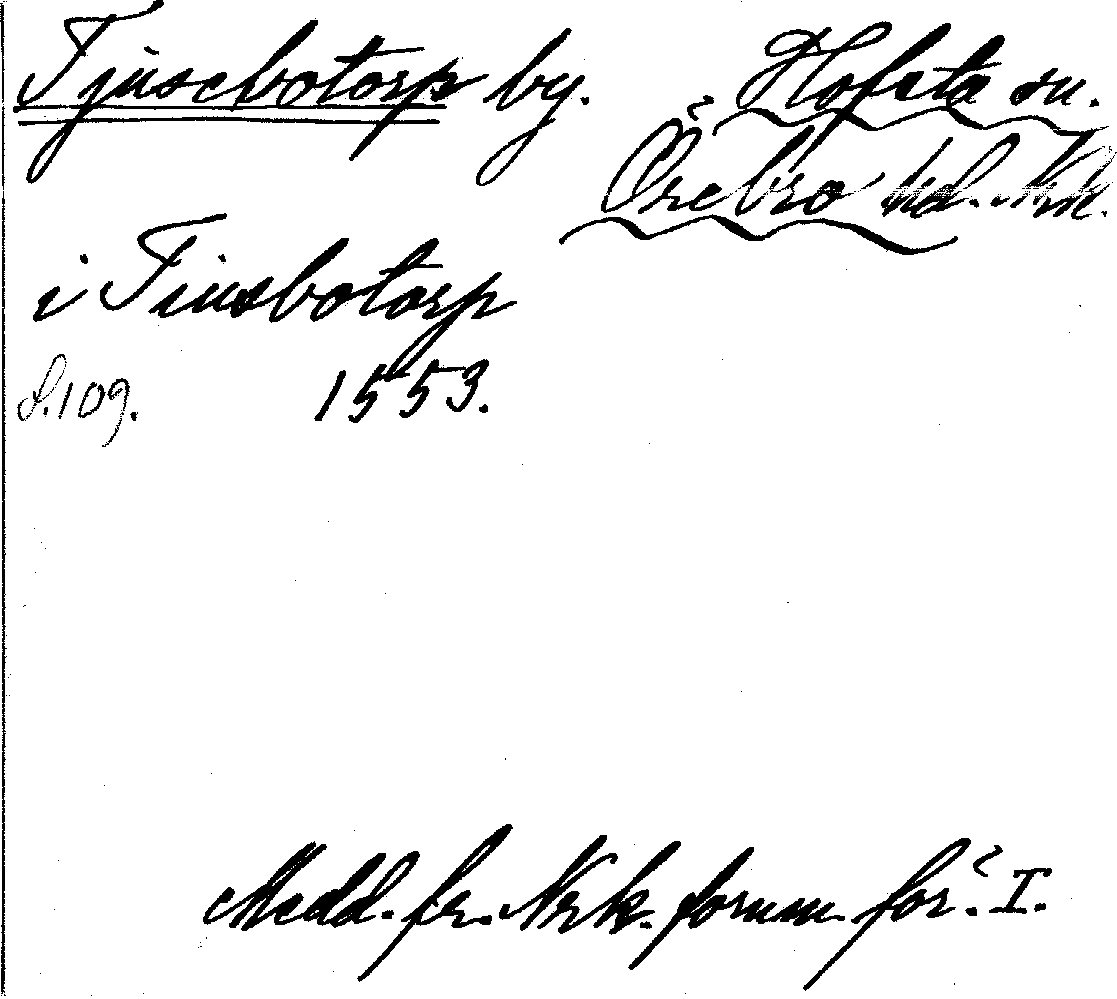 Tjusebotorp by. Hofsta sn.
Örebro hd. Nrk.
i Tiusbotorp
s. 109. 1553.
Medd. fr. Nrk. fornm. för. I.